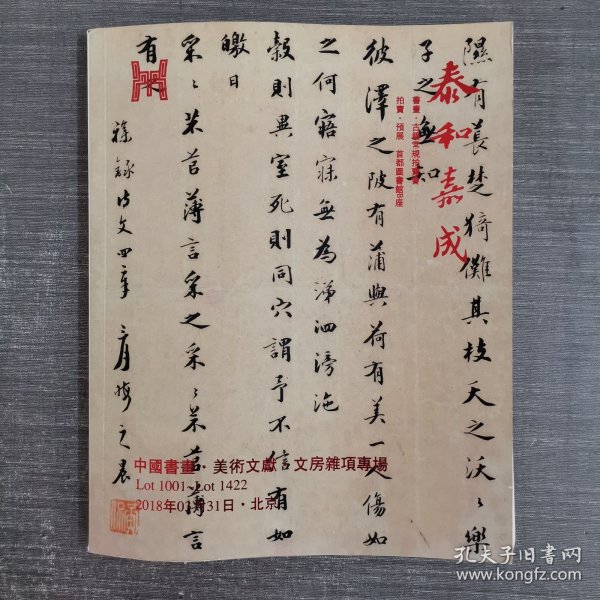 泰和嘉成
書畫·古籍常規拍賣會
拍賣·預展 首都圖書館B座
隰有萇楚猗儺其枝夭之沃〻樂
子之無知
彼澤之陂有蒲與荷有美一人傷如
之何寤寐無為涕泗滂沱
穀則異室死則同穴謂予不信有如
皦日
采〻芣苢薄言采之采〻芣苢薄言
有之
錄詩文四章 三月 之晨
中國書畫 美術文獻 文房雜項專場
Lot 1001~Lot 1422
2018年03月31日·北京
孔夫子旧书网
www.kongfz.com